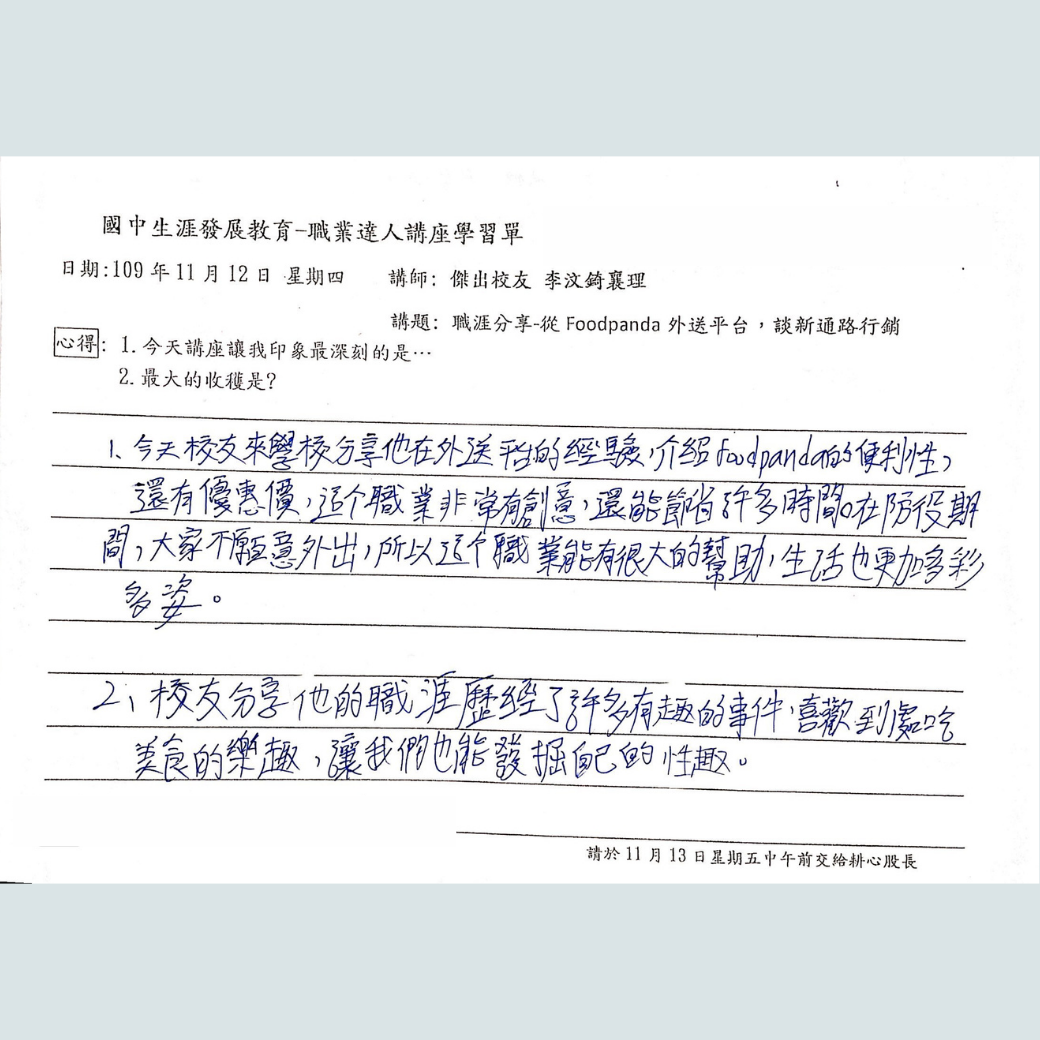 國中生涯發展教育-職業達人講座學習單
日期:109 年 11 月 12 日 星期四 講師: 傑出校友 李汶錡襄理
講題: 職涯分享-從 Foodpanda 外送平台，談新通路行銷
心得: 1. 今天講座讓我印象最深刻的是…
2. 最大的收穫是?
1、今天校友來學校分享他在外送的經驗，介紹foodpanda的便利性，
還有優惠價，這个職業非常有創意，還能節省許多時間。在防役期
間，大家不願意外出，所以這个職業能有很大的幫助，生活也更加多彩
多姿。
2、校友分享他的職涯歷經了許多有趣的事件，喜歡到處吃
美食的樂趣，讓我們也能發掘自己的性趣。
請於 11 月 13 日星期五中午前交給耕心股長